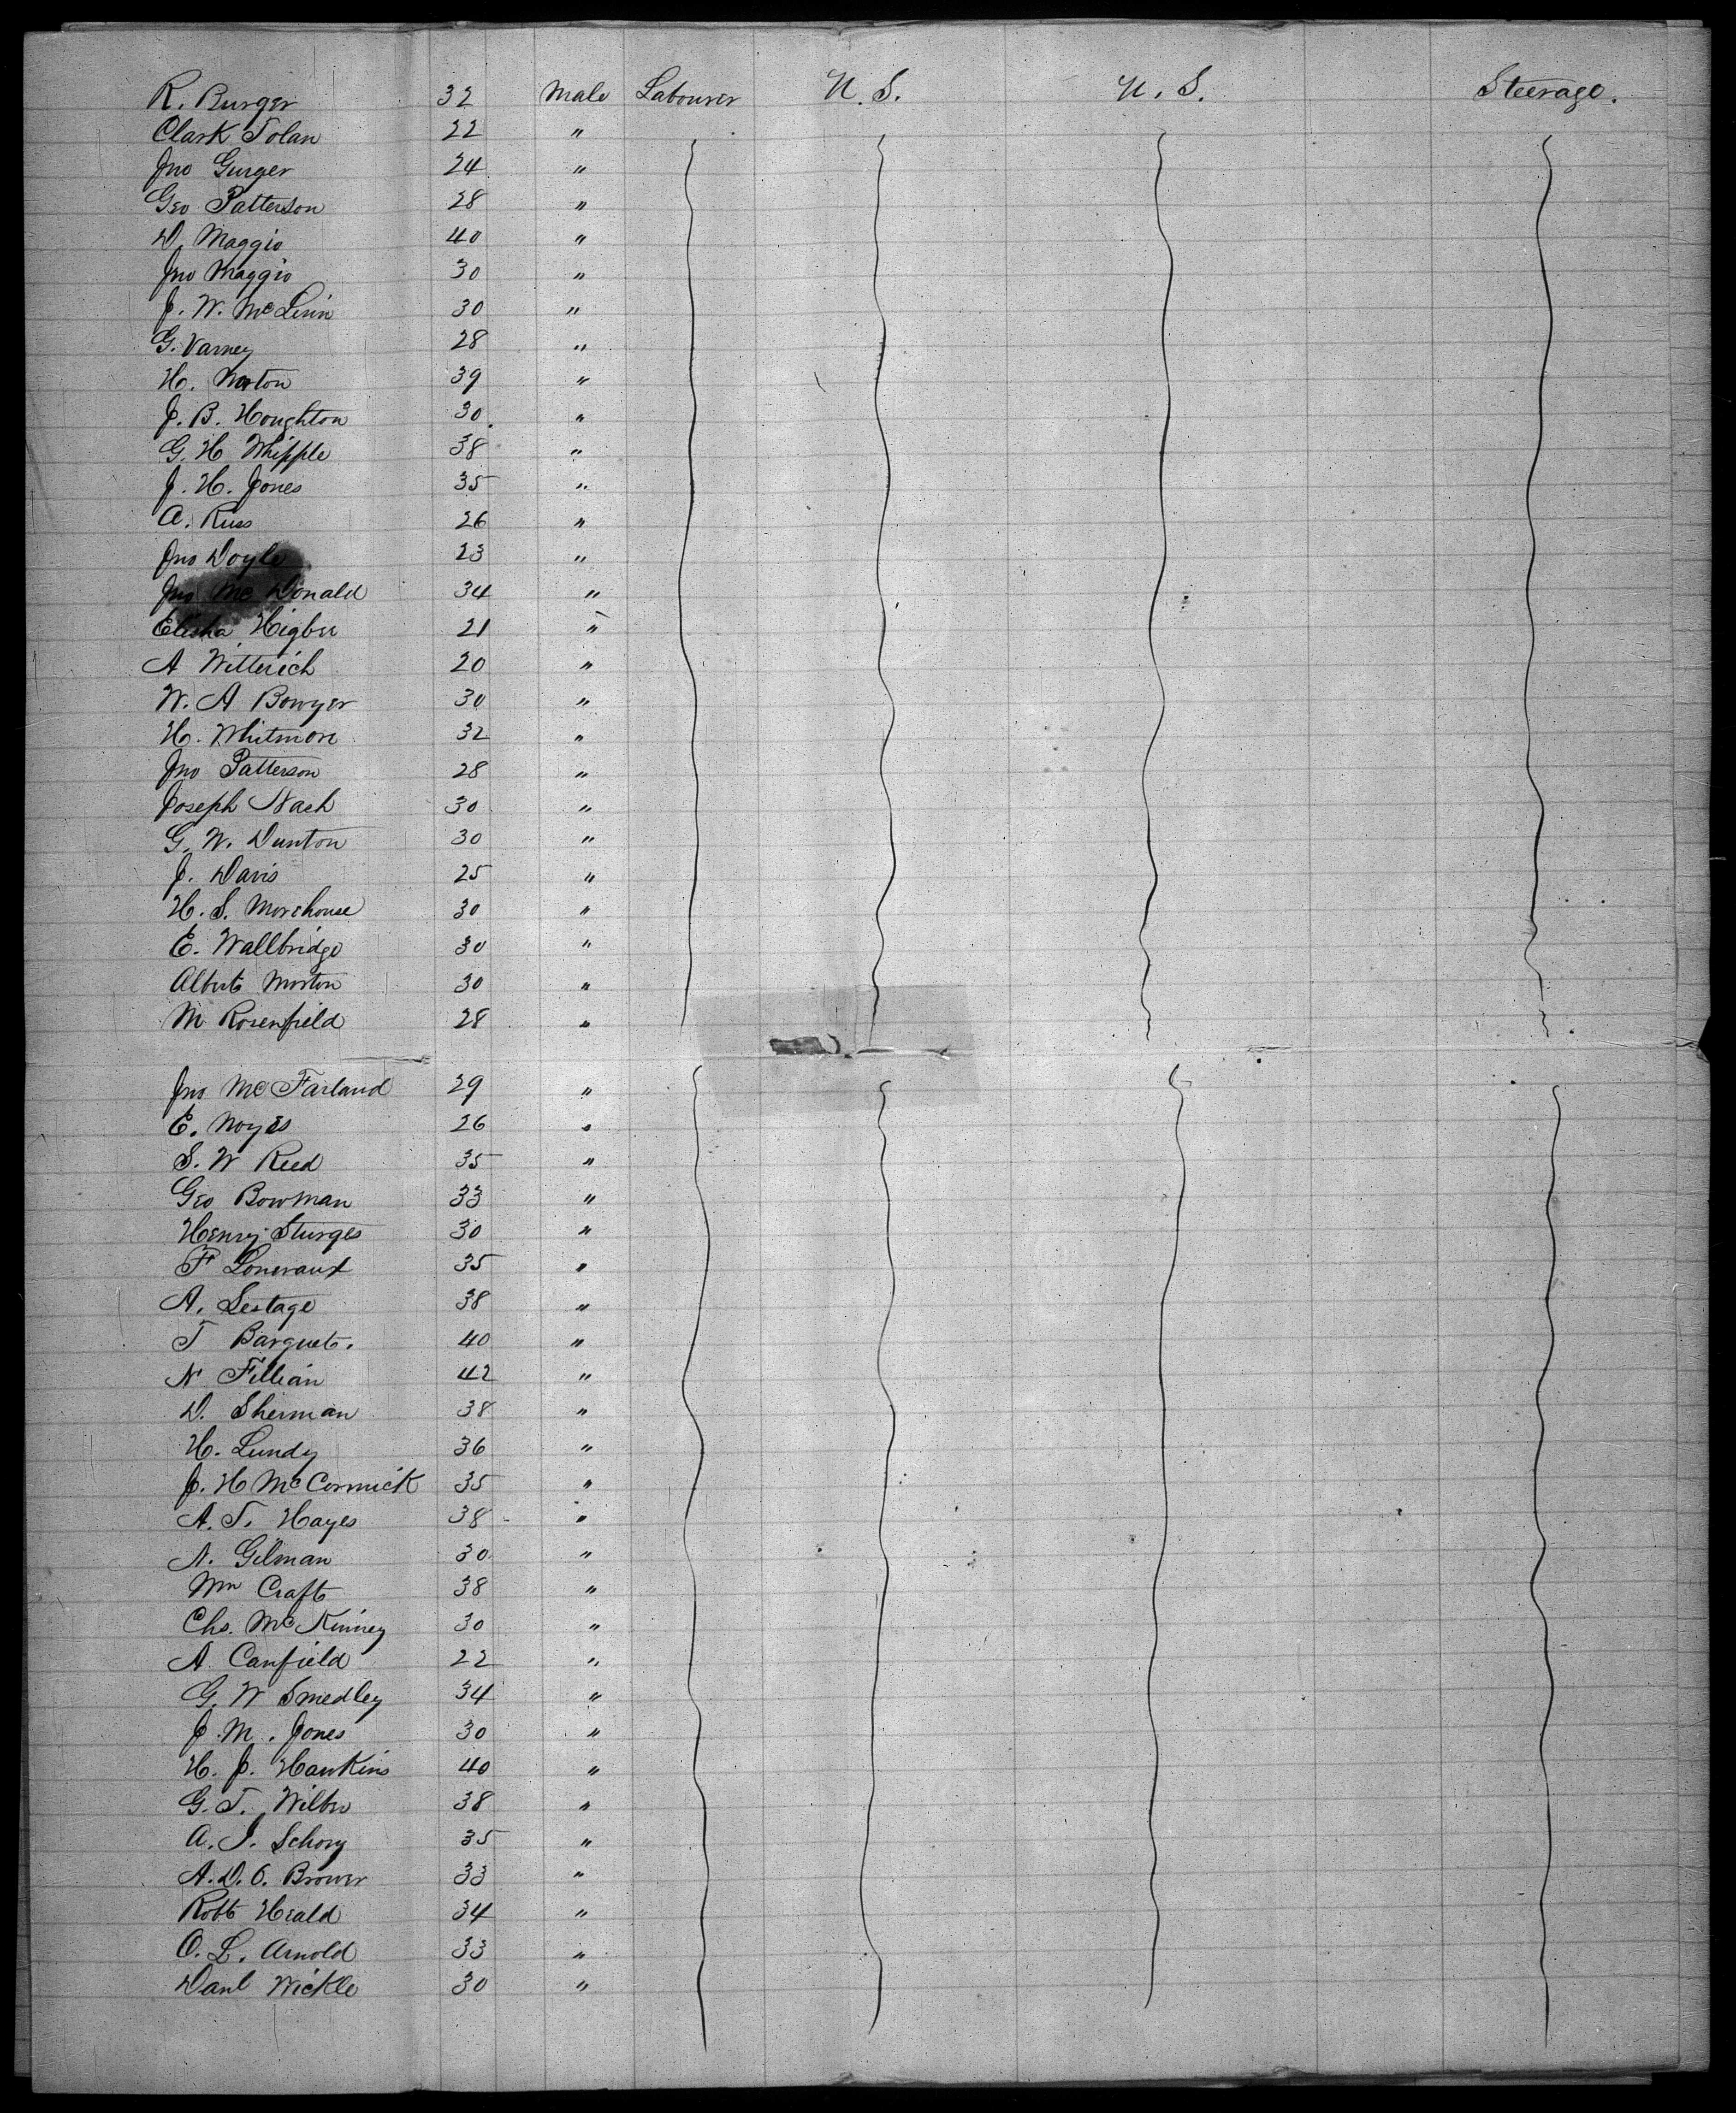 R. Burger 32 Male Labourer U.S. U.S. Steerage.
Clark Tolan 22 "
Jno Gurger 24 "
Geo Patterson 28 "
D. Maggio 40 "
Jno Maggio 30 "
J. W. McLinn 30 "
G. Varney 28 "
H. 39 "
J. B. Houghton 30 "
G. H Whipple 38 "
J. H. Jones 35 "
A. Russ 26 "
Jno Doyle 23 "
Jno McDonald 34 "
Elisha Higbee 21 "
A Witterich 20 "
W. A Bowyer 30 "
H. Whitmore 32 "
Jno Patterson 28 "
Joseph Nach 30 "
G. W. Dunton 30 "
J. Davis 25 "
H. S. Morehouse 30 "
E. Wallbridge 30 "
Albert Morton 30 "
M Rosenfield 28 "
Jno McFarland 29 "
E. Noyes 26 "
S. W Reed 35 "
Geo Bowman 33 "
Henry Sturges 30 "
F 35 "
A. Lestage 38 "
T Barguet. 40 "
N Fillian 42 "
D. Sherman 38 "
H. Lundy 36 "
J. H McCormick 35 "
A. T. Hayes 38 "
N. Gilman 30 "
Wm Craft 38 "
Chs. McKinney 30 "
A Canfield 22 "
G. W Smedley 34 "
J. M. Jones 30 "
H. J. Hawkins 40 "
G. T. Wilber 38 "
A. J. Schory 35 "
A. D. O. Brower 33 "
Robt Heald 34 "
O. L. Arnold 33 "
Danl Wickle 30 "